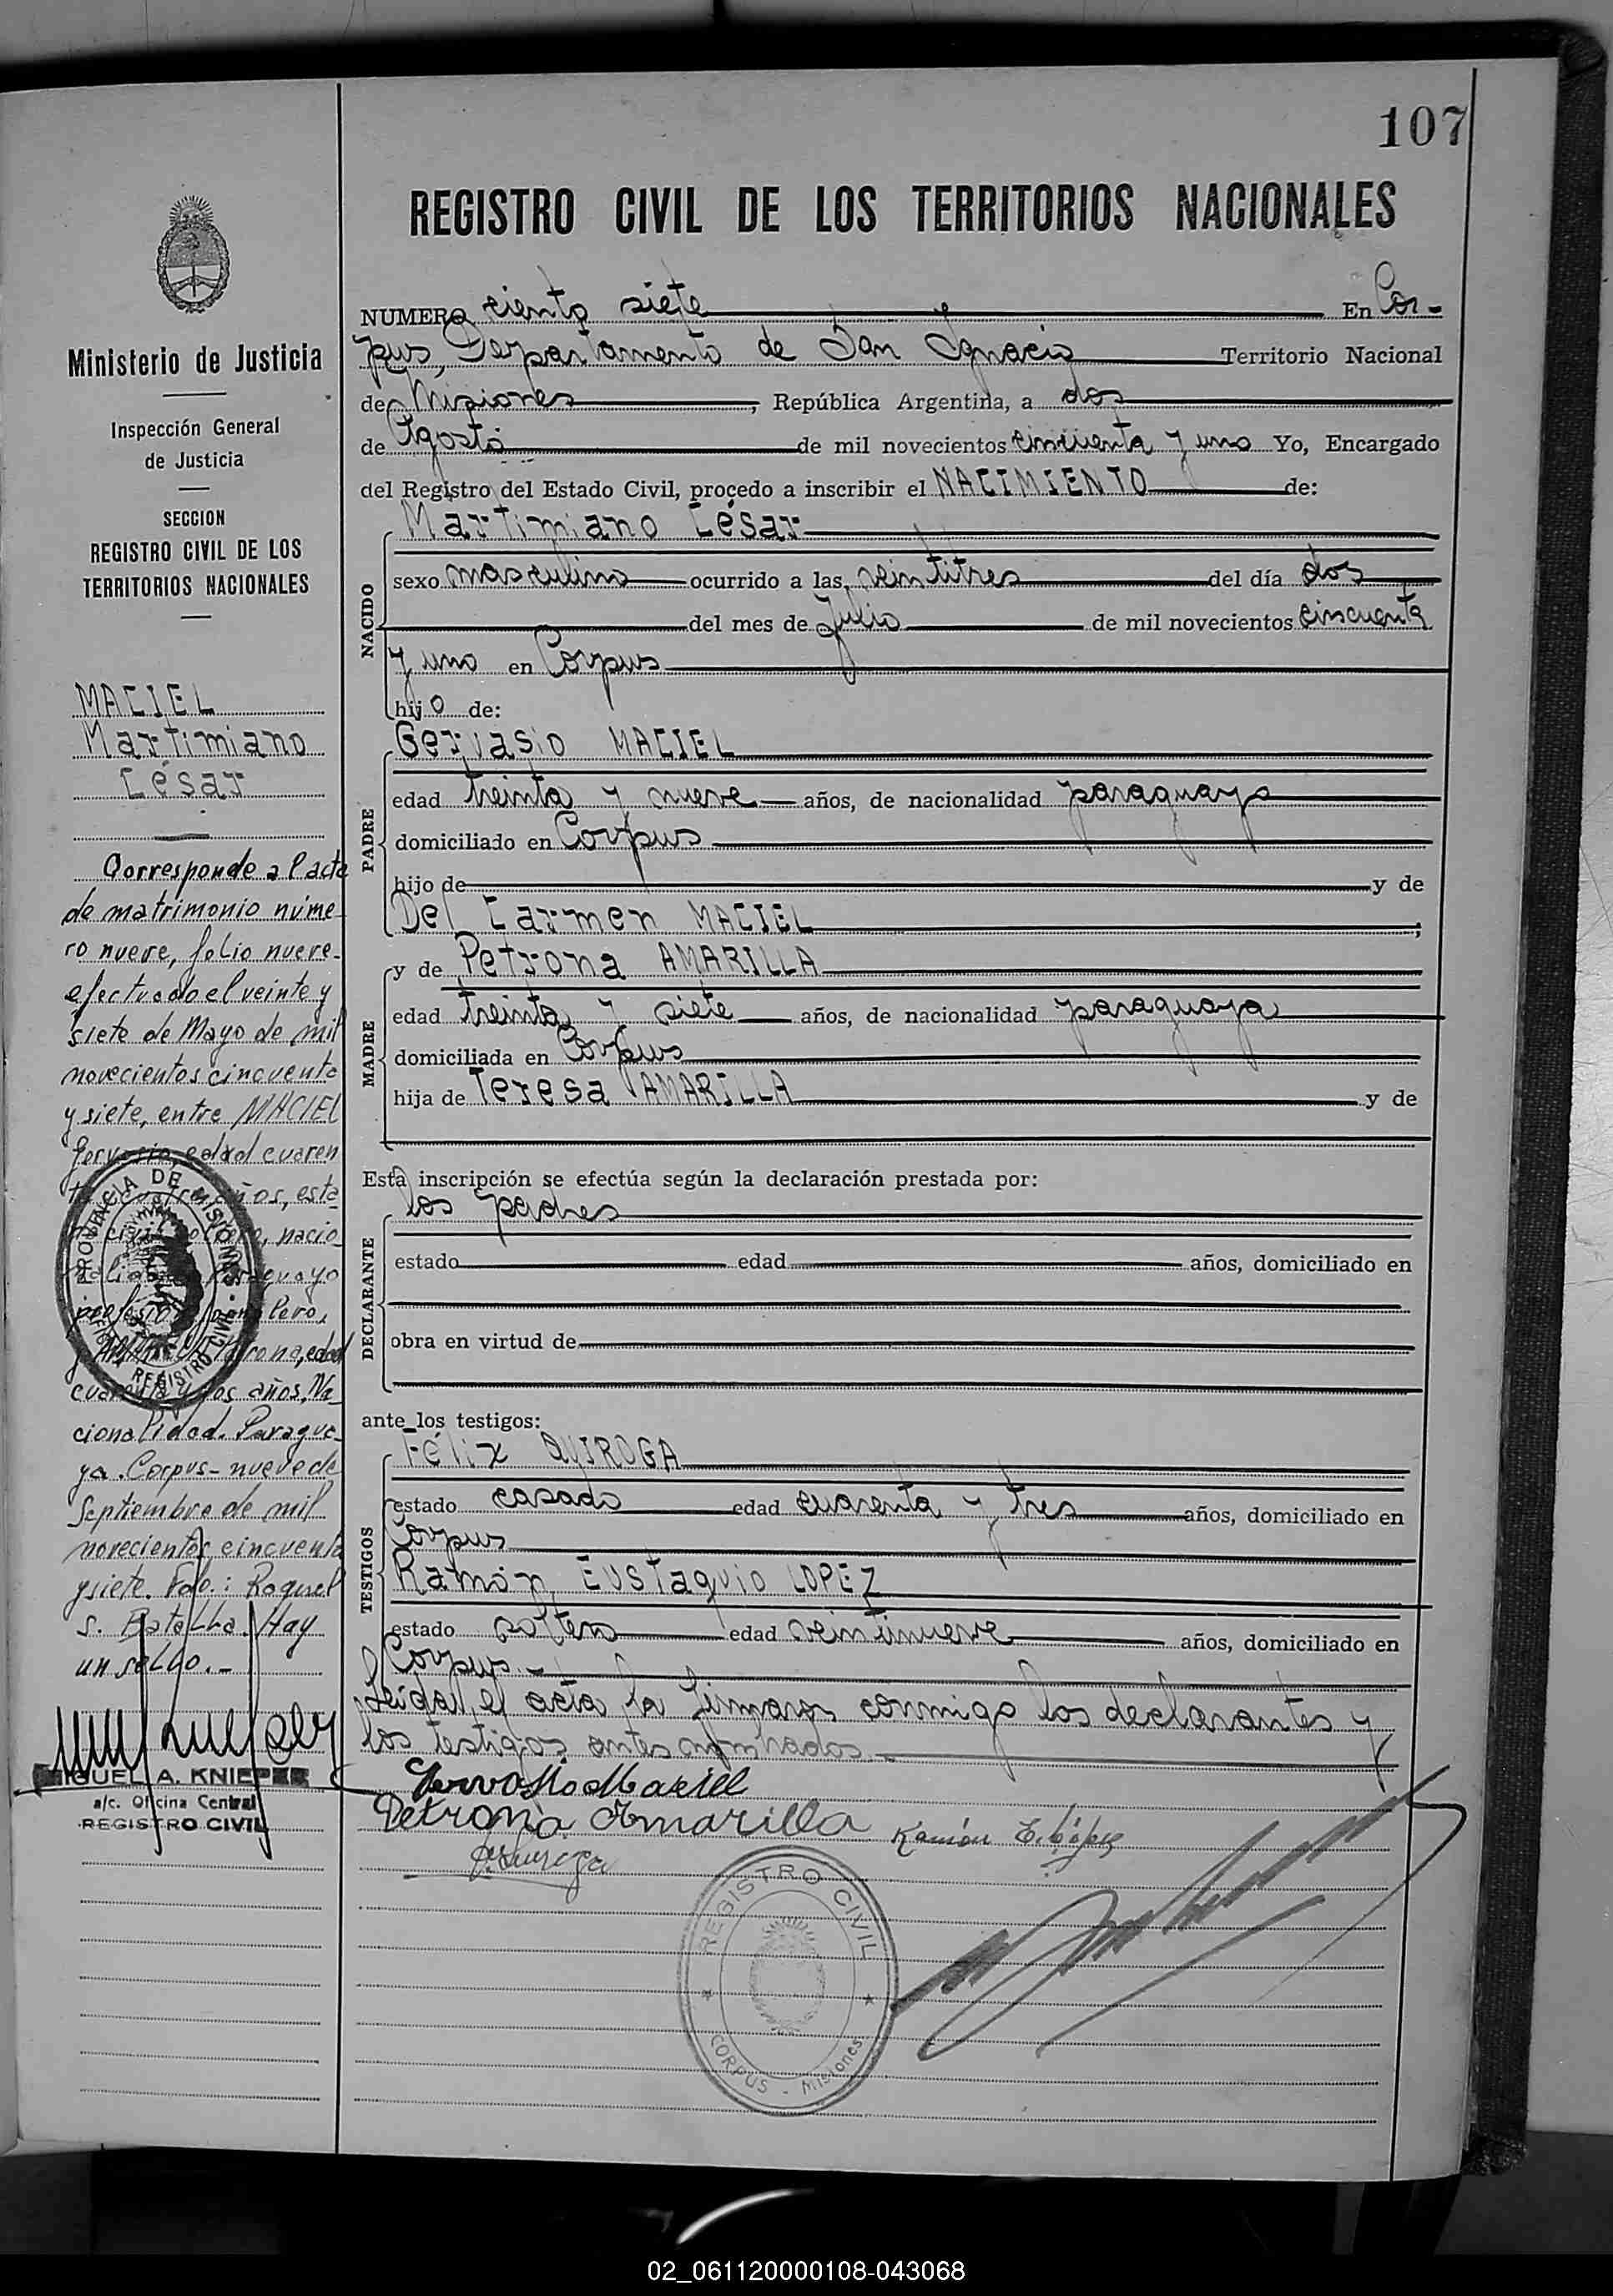 107
REGISTRO CIVIL DE LOS TERRITORIOS NACIONALES
Ministerio de Justicia
Inspección General
de Justicia
SECCION
REGISTRO CIVIL DE LOS
TERRITORIOS NACIONALES
MACIEL
Martimiano
César
Corresponde al acta
de matrimonio núme-
ro nueve, folio nueve-
efectuado el veinte y
siete de Mayo de mil
novecientos cincuenta
y siete, entre MACIEL
Gervasio, edad cuaren
años, esta
civil soltero, nacio
Paraguayo
profesión jornalero,
y Petrona, edad
cuarenta y dos años, Na
cionalidad. Paragua-
ya. Corpus- nueve de
Septiembre de mil
novecientos cincuenta
y siete. Fdo.: Raquel
S. Batalla. Hay
un sello.-
MIGUEL A. KNIEPER
a/c. Oficina Central
REGISTRO CIVIL
PROVINCIA DE MISIONES
REGISTRO CIVIL
NUMERO ciento siete En Cor-
pus, Departamento de San Ignacio Territorio Nacional
de Misiones, República Argentina, a dos
de Agosto de mil novecientos cincuenta y uno Yo, Encargado
del Registro del Estado Civil, procedo a inscribir el NACIMIENTO de:
NACIDO
Martimiano César
sexo masculino ocurrido a las veintitres del día dos
del mes de Julio de mil novecientos cincuenta
y uno en Corpus
hijo de:
PADRE
Gervasio MACIEL
edad treinta y nueve años, de nacionalidad paraguayo
domiciliado en Corpus
hijo de y de
Del Carmen MACIEL;
MADRE
y de Petrona AMARILLA
edad treinta y siete años, de nacionalidad paraguaya
domiciliada en Corpus
hija de Teresa AMARILLA y de
Esta inscripción se efectúa según la declaración prestada por:
DECLARANTE
los padres
estado edad años, domiciliado en
obra en virtud de
ante los testigos:
TESTIGOS
Félix QUIROGA
estado casado edad cuarenta y tres años, domiciliado en
Corpus
Ramón EUSTAQUIO LOPEZ
estado soltero edad veintinueve años, domiciliado en
Corpus.-
Leída el acta la firmaron conmigo los declarantes y
los testigos antes nombrados.
Gervasio Maciel
Petrona Amarilla Ramón E. López
Quiroga
REGISTRO CIVIL
CORPUS - Misiones
02_061120000108-043068